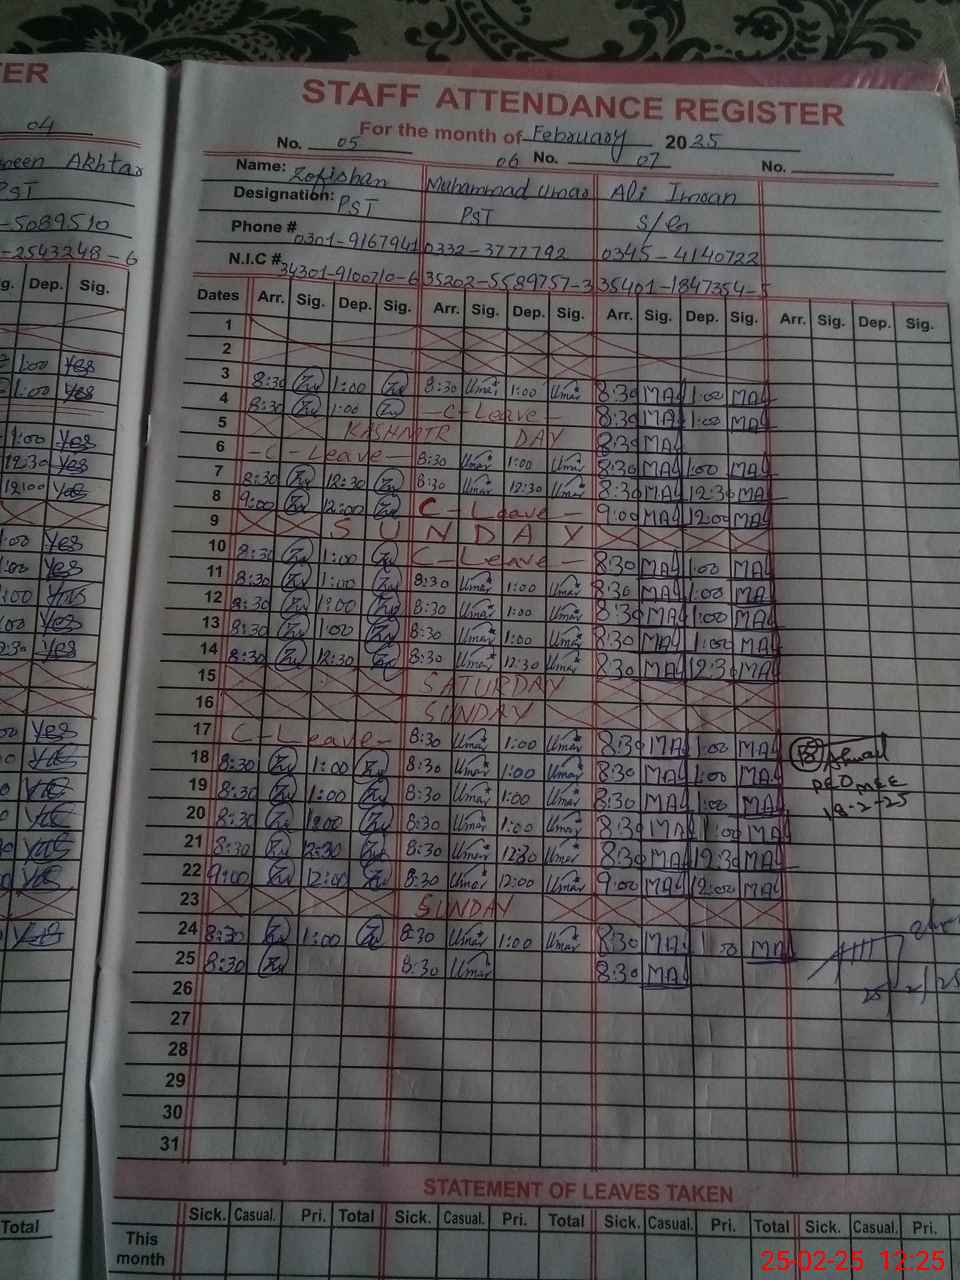 ER
04
Akhtar
PST
-5089510
-2543248-6
Dep. Sig.
1:00 Yes
1:00 Yes
1:00 Yes
12:30 Yes
12:00 Yes
Total
STAFF ATTENDANCE REGISTER
For the month of February 2025
No. 05 06 No. 07 No.
Name: Zofishan Muhammad Umar Ali Imran
Designation: PST PST
Phone # 0301-9167941 0332-3777792 0345-4140722
N.I.C #. 34301-9100710-6 35202-5589757-3 35401-1847354-5
Dates Arr. Sig. Dep. Sig. Arr. Sig. Dep. Sig. Arr. Sig. Dep. Sig. Arr. Sig. Dep. Sig.
1
2
3 8:30 1:00 8:30 Umar 1:00 Umar 8:30 MA 1:00 MA
4 8:30 1:00 -C-Leave- 8:30 MA 1:00 MA
5 KASHMIR DAY 8:30 MA
6 -C-Leave- 8:30 Umar 1:00 Umar 8:30 MA 1:00 MA
7 8:30 12:30 8:30 Umar 12:30 Umar 8:30 MA 12:30 MA
8 9:00 12:00 C-Leave- 9:00 MA 12:00 MA
9 SUNDAY
10 8:30 1:00 C-Leave- 8:30 MA 1:00 MA
11 8:30 1:00 8:30 Umar 1:00 Umar 8:30 MA 1:00 MA
12 8:30 1:00 8:30 Umar 1:00 Umar 8:30 MA 1:00 MA
13 8:30 1:00 8:30 Umar 1:00 Umar 8:30 MA 1:00 MA
14 8:30 12:30 8:30 Umar 12:30 Umar 8:30 MA 12:30 MA
15 SATURDAY
16 SUNDAY
17 C-Leave- 8:30 Umar 1:00 Umar 8:30 MA 1:00 MA
18 8:30 1:00 8:30 Umar 1:00 Umar 8:30 MA 1:00 MA
19 8:30 1:00 8:30 Umar 1:00 Umar 8:30 MA 1:00 MA
MEE
18-2-25
20 8:30 1:00 8:30 Umar 1:00 Umar 8:30 MA 1:00 MA
21 8:30 12:30 8:30 Umar 12:30 Umar 8:30 MA 12:30 MA
22 9:00 12:00 8:30 Umar 12:00 Umar 9:00 MA 12:00 MA
23 SUNDAY
24 8:30 1:00 8:30 Umar 1:00 Umar 8:30 MA MA
25 8:30 8:30 Umar 8:30 MA
26
27
28
29
30
31
STATEMENT OF LEAVES TAKEN
Sick. Casual. Pri. Total Sick. Casual. Pri. Total Sick. Casual. Pri. Total Sick. Casual. Pri.
This month
25-02-25 12:25